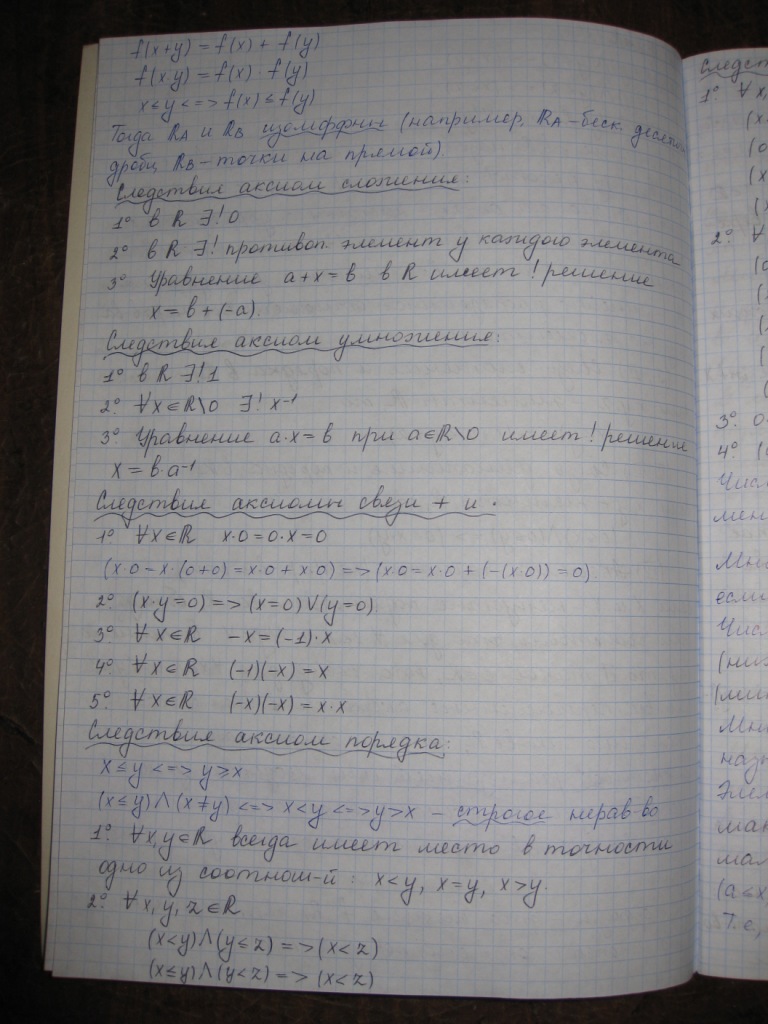 f(x+y) = f(x) + f(y)
f(x·y) = f(x) · f(y)
x≤y <=> f(x) ≤ f(y)
Тогда ℝA и ℝB изоморфны (например, ℝA – беск. десятич
дроби, ℝB – точки на прямой).
Следствия аксиом сложения:
1° в ℝ ∃! 0
2° в ℝ ∃! противоп. элемент у каждого элемента
3° Уравнение a+x=в в ℝ имеет ! решение
x = в + (-a).
Следствия аксиом умножения:
1° в ℝ ∃! 1
2° ∀x∈ℝ\0 ∃! x⁻¹
3° Уравнение a·x=в при a∈ℝ\0 имеет ! решение
x = в·a⁻¹
Следствия аксиомы связи + и ·
1° ∀x∈ℝ x·0=0·x=0
(x·0=x·(0+0)=x·0+x·0) => (x·0=x·0+(-(x·0))=0).
2° (x·y=0) => (x=0)∨(y=0).
3° ∀x∈ℝ -x=(-1)·x
4° ∀x∈ℝ (-1)(-x)=x
5° ∀x∈ℝ (-x)(-x)=x·x
Следствия аксиом порядка:
x≤y <=> y≥x
(x≤y)∧(x≠y) <=> x<y <=> y>x – строгое нерав-во
1° ∀x,y∈ℝ всегда имеет место в точности
одно из соотнош-й: x<y, x=y, x>y.
2° ∀x,y,z∈ℝ
(x<y)∧(y≤z) => (x<z)
(x≤y)∧(y<z) => (x<z)
Следст
1° ∀x,
2° ∀
3° 0
4° (
Числ
мен
Мно
если
Числ
(ниж
Мн
наз
Элем
мак
мал
(a≤x
Т.е.,